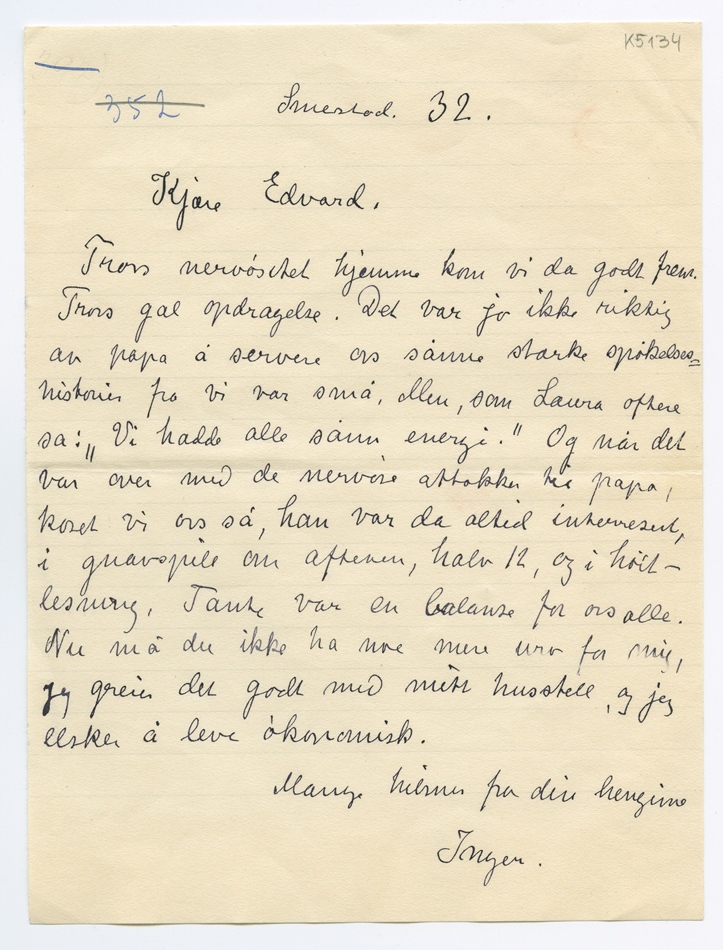 K5134
352
Smestad. 32.
Kjære Edvard.
Tross nervøsitet hjemme kom vi da godt frem.
Tross gal opdragelse. Det var jo ikke riktig
av papa å servere oss sånne stærke spökelses=
historier fra vi var små. Men, som Laura oftere
sa: „Vi hadde alle sånn energi." Og når det
var over med de nervöse attakker til papa,
koset vi oss så, han var da altid interresert,
i gnavspille om aftenen, halv 12, og i höit-
lesning. Tante var en balanse for oss alle.
Nu må du ikke ha noe mere uro for mig,
jeg greier det godt med mitt husstell, og jeg
elsker å leve ökonomisk.
Mange hilsner fra din hengivne
Inger.